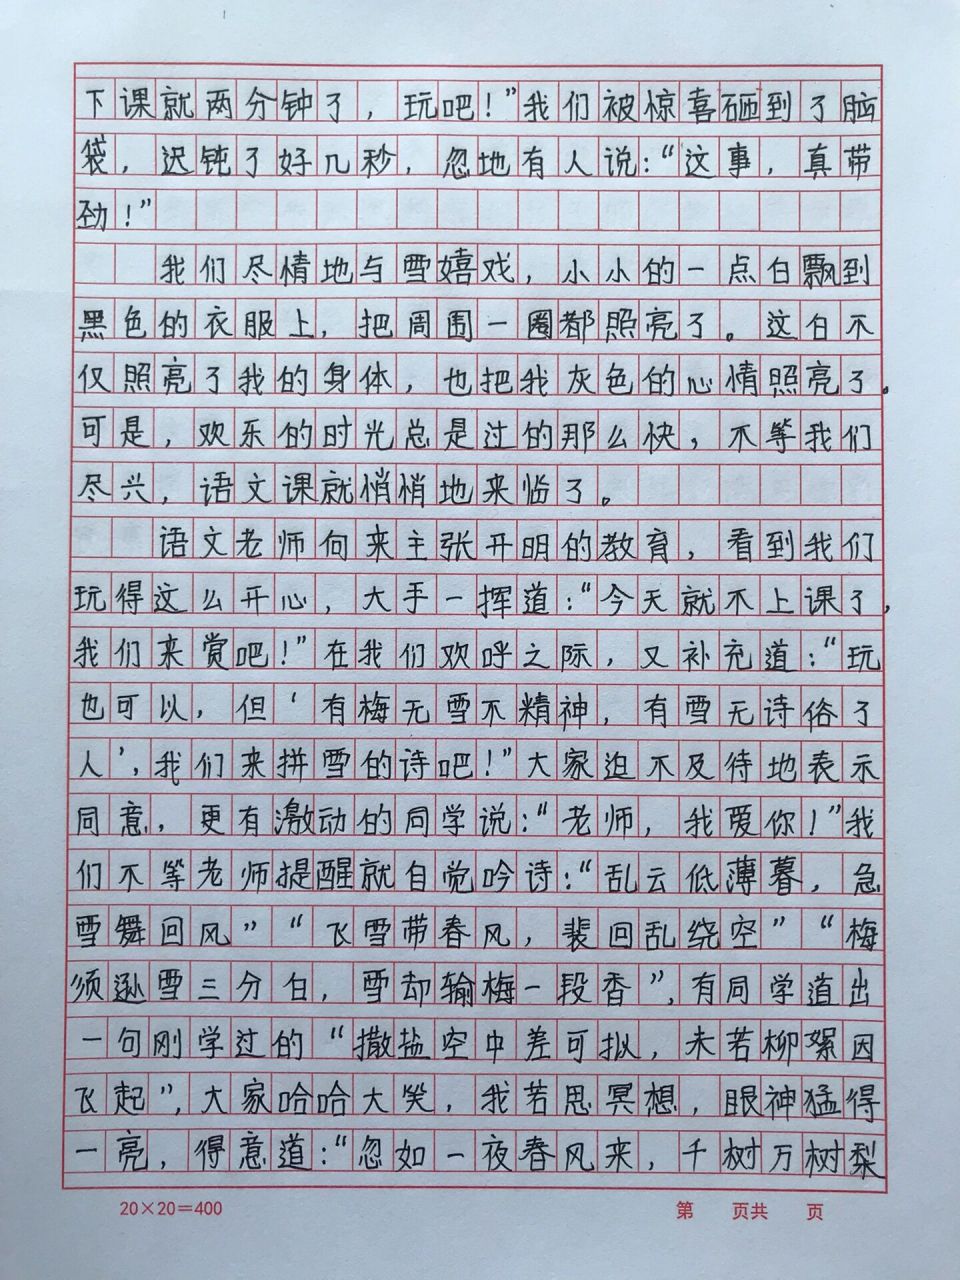 下课就两分钟了，玩吧！”我们被惊喜砸到了脑
袋，迟钝了好几秒，忽地有人说：“这事，真带
劲！”
我们尽情地与雪嬉戏，小小的一点白飘到
黑色的衣服上，把周围一圈都照亮了。这白不
仅照亮了我的身体，也把我灰色的心情照亮了。
可是，欢乐的时光总是过的那么快，不等我们
尽兴，语文课就悄悄地来临了。
语文老师向来主张开明的教育，看到我们
玩得这么开心，大手一挥道：“今天就不上课了，
我们来赏吧！”在我们欢呼之际，又补充道：“玩
也可以，但‘有梅无雪不精神，有雪无诗俗了
人’，我们来拼雪的诗吧！”大家迫不及待地表示
同意，更有激动的同学说：“老师，我爱你！”我
们不等老师提醒就自觉吟诗：“乱云低薄暮，急
雪舞回风”“飞雪带春风，裴回乱绕空”“梅
须逊雪三分白，雪却输梅一段香”，有同学道出
一句刚学过的“撒盐空中差可拟，未若柳絮因
飞起”，大家哈哈大笑，我若思冥想，眼神猛得
一亮，得意道：“忽如一夜春风来，千树万树梨
20×20=400
第 页共 页